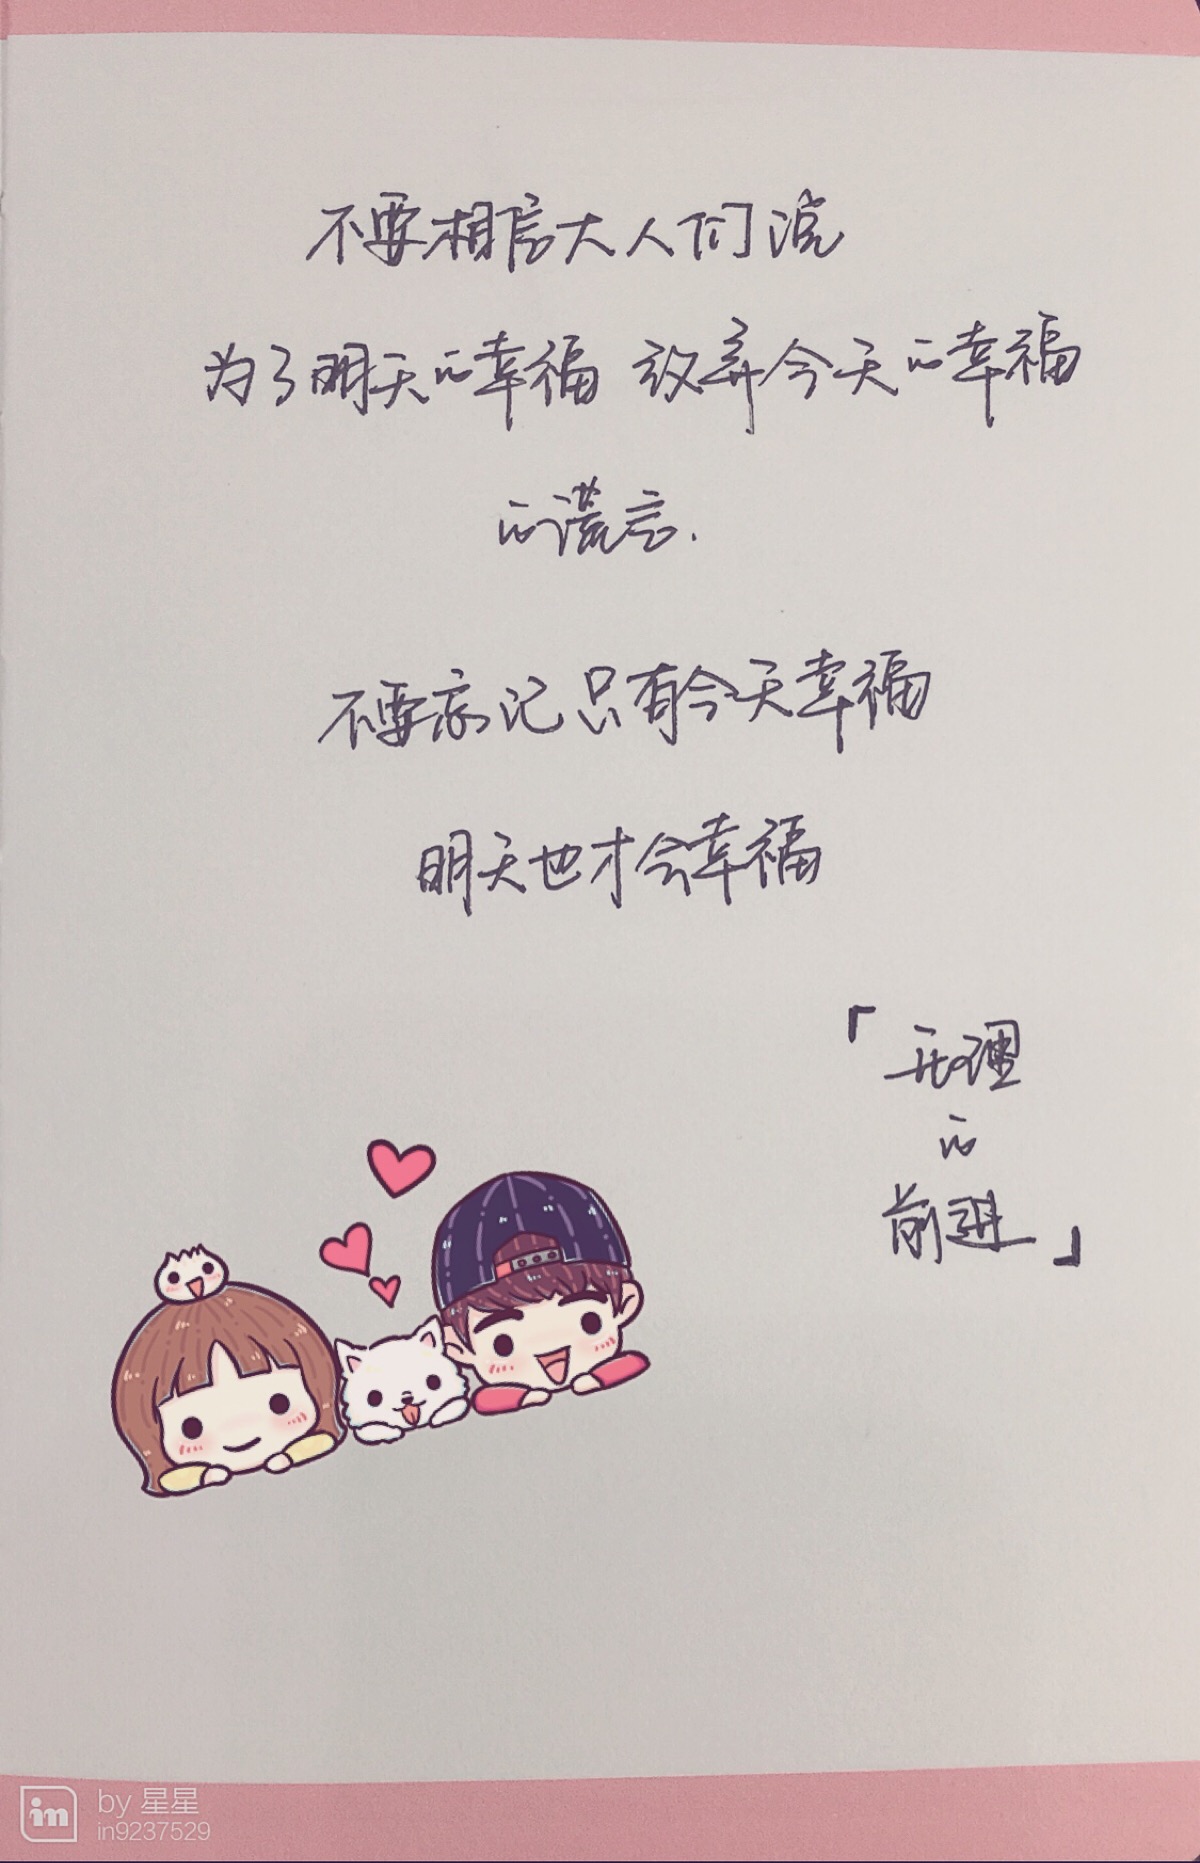 不要相信大人们说
为了明天的幸福 放弃今天的幸福
的谎言.
不要忘记只有今天幸福
明天也才会幸福
「无理
的
前进」
by 星星
in9237529